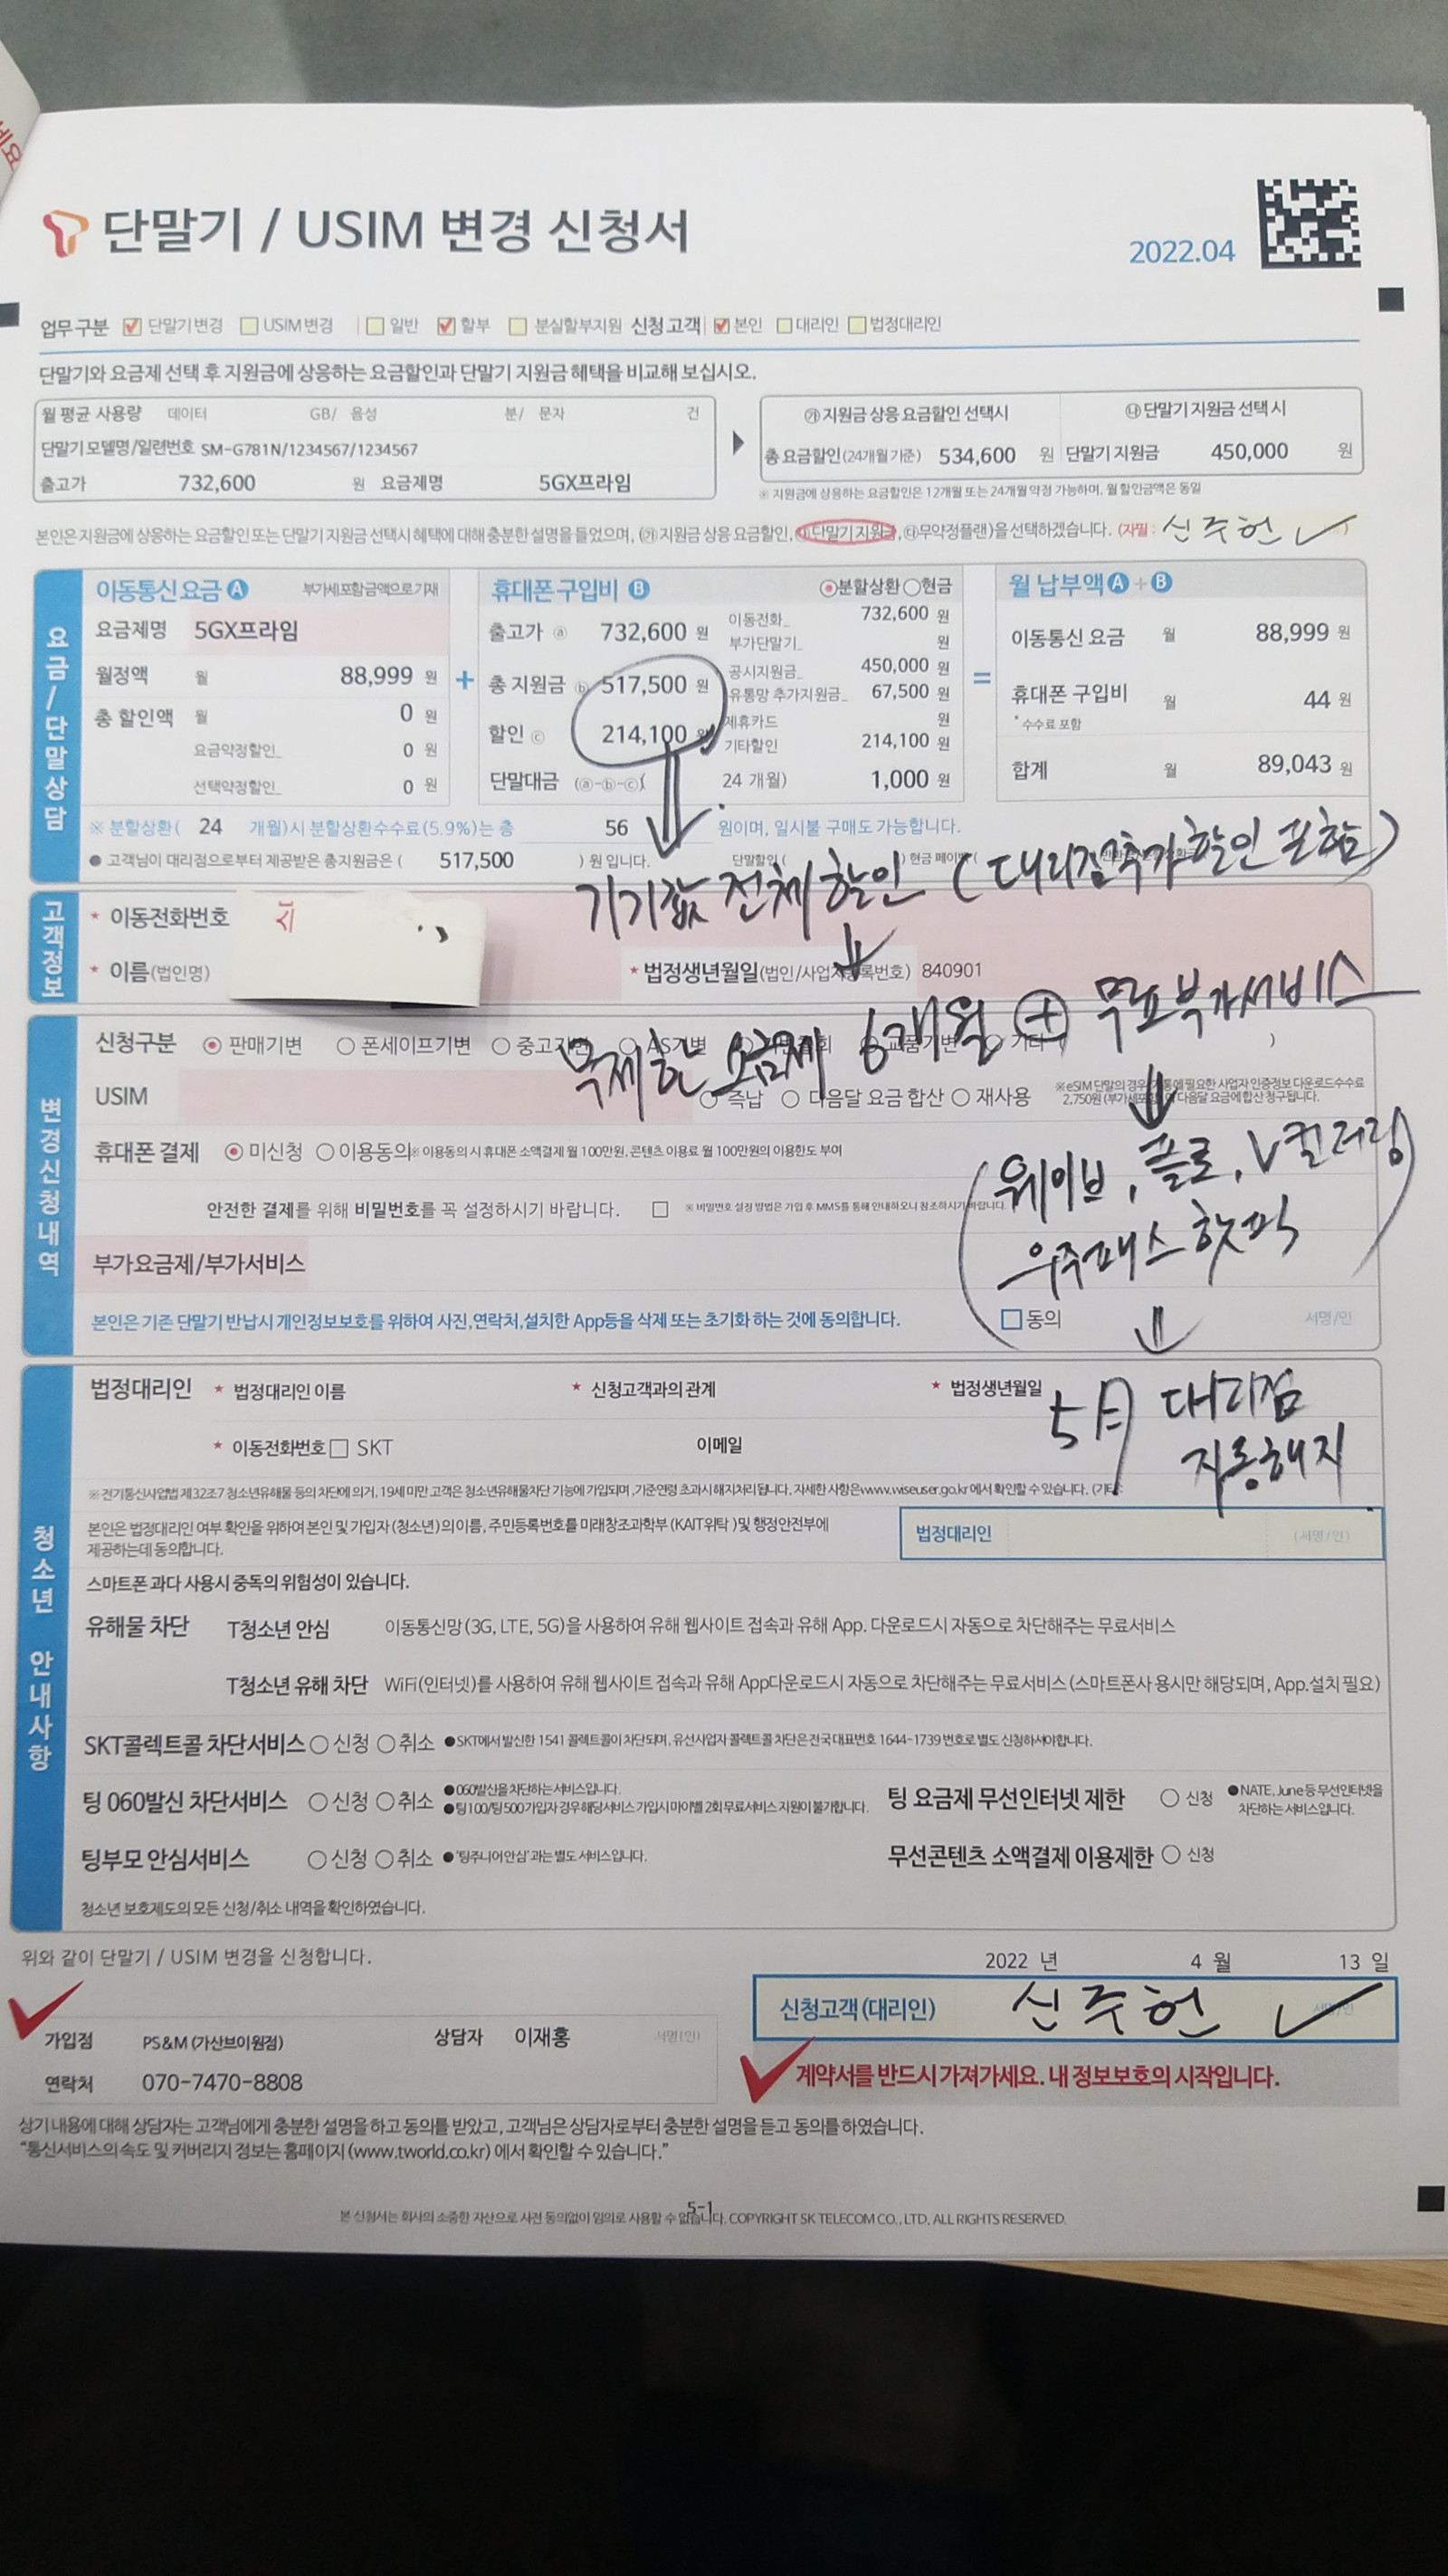 단말기 / USIM 변경 신청서
2022.04
업무구분 단말기변경 USIM변경 일반 할부 분실할부지원 신청고객 본인 대리인 법정대리인
단말기와 요금제 선택 후 지원금에 상응하는 요금할인과 단말기 지원금 혜택을 비교해 보십시오.
월 평균 사용량 데이터 GB/ 음성 분/ 문자 건
단말기 모델명/일련번호 SM-G781N/1234567/1234567
출고가 732,600 원 요금제명 5GX프라임
㉮ 지원금 상응 요금할인 선택시 ㉯ 단말기 지원금 선택 시
총 요금할인(24개월 기준) 534,600 원 단말기 지원금 450,000 원
※ 지원금에 상응하는 요금할인은 12개월 또는 24개월 약정 가능하며, 월 할인금액은 동일
본인은 지원금에 상응하는 요금할인 또는 단말기 지원금 선택시 혜택에 대해 충분한 설명을 들었으며, (㉮ 지원금 상응 요금할인, ㉯단말기 지원금, ㉰무약정플랜)을 선택하겠습니다. (자필 : 신주헌 )
요금/단말상담
이동통신 요금 A 부가세포함금액으로기재
요금제명 5GX프라임
월정액 월 88,999 원
총 할인액 월 0 원
요금약정할인_ 0 원
선택약정할인_ 0 원
+
휴대폰 구입비 B 분할상환 현금
출고가 ⓐ 732,600 원
총 지원금 ⓑ 517,500 원
할인 ⓒ 214,100 원
단말대금 (ⓐ-ⓑ-ⓒ)( 24 개월) 1,000 원
이동전화_ 732,600 원
부가단말기_ 원
공시지원금_ 450,000 원
유통망 추가지원금_ 67,500 원
제휴카드 원
기타할인 214,100 원
=
월 납부액 A + B
이동통신 요금 월 88,999 원
휴대폰 구입비 월 44 원
* 수수료 포함
합계 월 89,043 원
※ 분할상환 ( 24 개월)시 분할상환수수료(5.9%)는 총 56 원이며, 일시불 구매도 가능합니다.
● 고객님이 대리점으로부터 제공받은 총지원금은 ( 517,500 ) 원 입니다. 단말할인 ( ) 현금 페이백 (
기기값 전체 할인 (대리점추가할인 포함)
고객정보
* 이동전화번호
* 이름(법인명)
* 법정생년월일(법인/사업자등록번호) 840901
무제한 요금제 6개월 + 무료부가서비스
변경신청내역
신청구분 판매기변 폰세이프기변 중고기변 AS기변 교품기변 기타 ( )
USIM 즉납 다음달 요금 합산 재사용
2,750원 (부가세포함)이 다음달 요금에 합산 청구됩니다.
휴대폰 결제 미신청 이용동의 ※ 이용동의 시 휴대폰 소액결제 월 100만원, 콘텐츠 이용료 월 100만원의 이용한도 부여
(웨이브, 플로, V컬러링
우주패스 핫픽)
안전한 결제를 위해 비밀번호를 꼭 설정하시기 바랍니다. ※ 비밀번호 설정 방법은 가입 후 MMS를 통해 안내하오니 참조하시기 바랍니다.
부가요금제/부가서비스
본인은 기존 단말기 반납시 개인정보보호를 위하여 사진,연락처,설치한 App등을 삭제 또는 초기화 하는 것에 동의합니다. 동의 서명/인
5月 대리점
자동해지
청소년 안내사항
법정대리인 * 법정대리인 이름 * 신청고객과의 관계 * 법정생년월일
* 이동전화번호 SKT 이메일
※ 전기통신사업법 제32조7 청소년유해물 등의 차단에 의거, 19세 미만 고객은 청소년유해물차단 기능에 가입되며, 기준연령 초과시 해지처리 됩니다. 자세한 사항은www.wiseuser.go.kr에서 확인할 수 있습니다. (기타:
본인은 법정대리인 여부 확인을 위하여 본인 및 가입자 (청소년)의 이름, 주민등록번호를 미래창조과학부 (KAIT위탁 )및 행정안전부에
제공하는데 동의합니다.
법정대리인 (서명/인)
스마트폰 과다 사용시 중독의 위험성이 있습니다.
유해물 차단 T청소년 안심 이동통신망 (3G, LTE, 5G)을 사용하여 유해 웹사이트 접속과 유해 App. 다운로드시 자동으로 차단해주는 무료서비스
T청소년 유해 차단 WiFi(인터넷)를 사용하여 유해 웹사이트 접속과 유해 App다운로드시 자동으로 차단해주는 무료서비스 (스마트폰사 용시만 해당되며, App.설치 필요)
SKT콜렉트콜 차단서비스 신청 취소 ●SKT에서 발신한 1541 콜렉트콜이 차단되며, 유선사업자 콜렉트콜 차단은 전국 대표번호 1644-1739 번호로 별도 신청하셔야합니다.
팅 060발신 차단서비스 신청 취소 ●060발신을 차단하는 서비스입니다.
●팅100/팅500 가입자 경우 해당서비스 가입시 마이벨 2회 무료서비스 지원이 불가합니다.
팅 요금제 무선인터넷 제한 신청 ●NATE, June 등 무선인터넷을
차단하는 서비스입니다.
팅부모 안심서비스 신청 취소 ●'팅주니어 안심' 과는 별도 서비스입니다.
무선콘텐츠 소액결제 이용제한 신청
청소년 보호제도의 모든 신청/취소 내역을 확인하였습니다.
위와 같이 단말기 / USIM 변경을 신청합니다.
2022 년 4 월 13 일
신청고객 (대리인) 신주헌
가입점 PS&M (가산브이원점) 상담자 이재홍 서명(인)
연락처 070-7470-8808
계약서를 반드시 가져가세요. 내 정보보호의 시작입니다.
상기 내용에 대해 상담자는 고객님에게 충분한 설명을 하고 동의를 받았고, 고객님은 상담자로부터 충분한 설명을 듣고 동의를 하였습니다.
"통신서비스의 속도 및 커버리지 정보는 홈페이지 (www.tworld.co.kr) 에서 확인할 수 있습니다."
5-1
본 신청서는 회사의 소중한 자산으로 사전 동의없이 임의로 사용할 수 없습니다. COPYRIGHT SK TELECOM CO., LTD. ALL RIGHTS RESERVED.